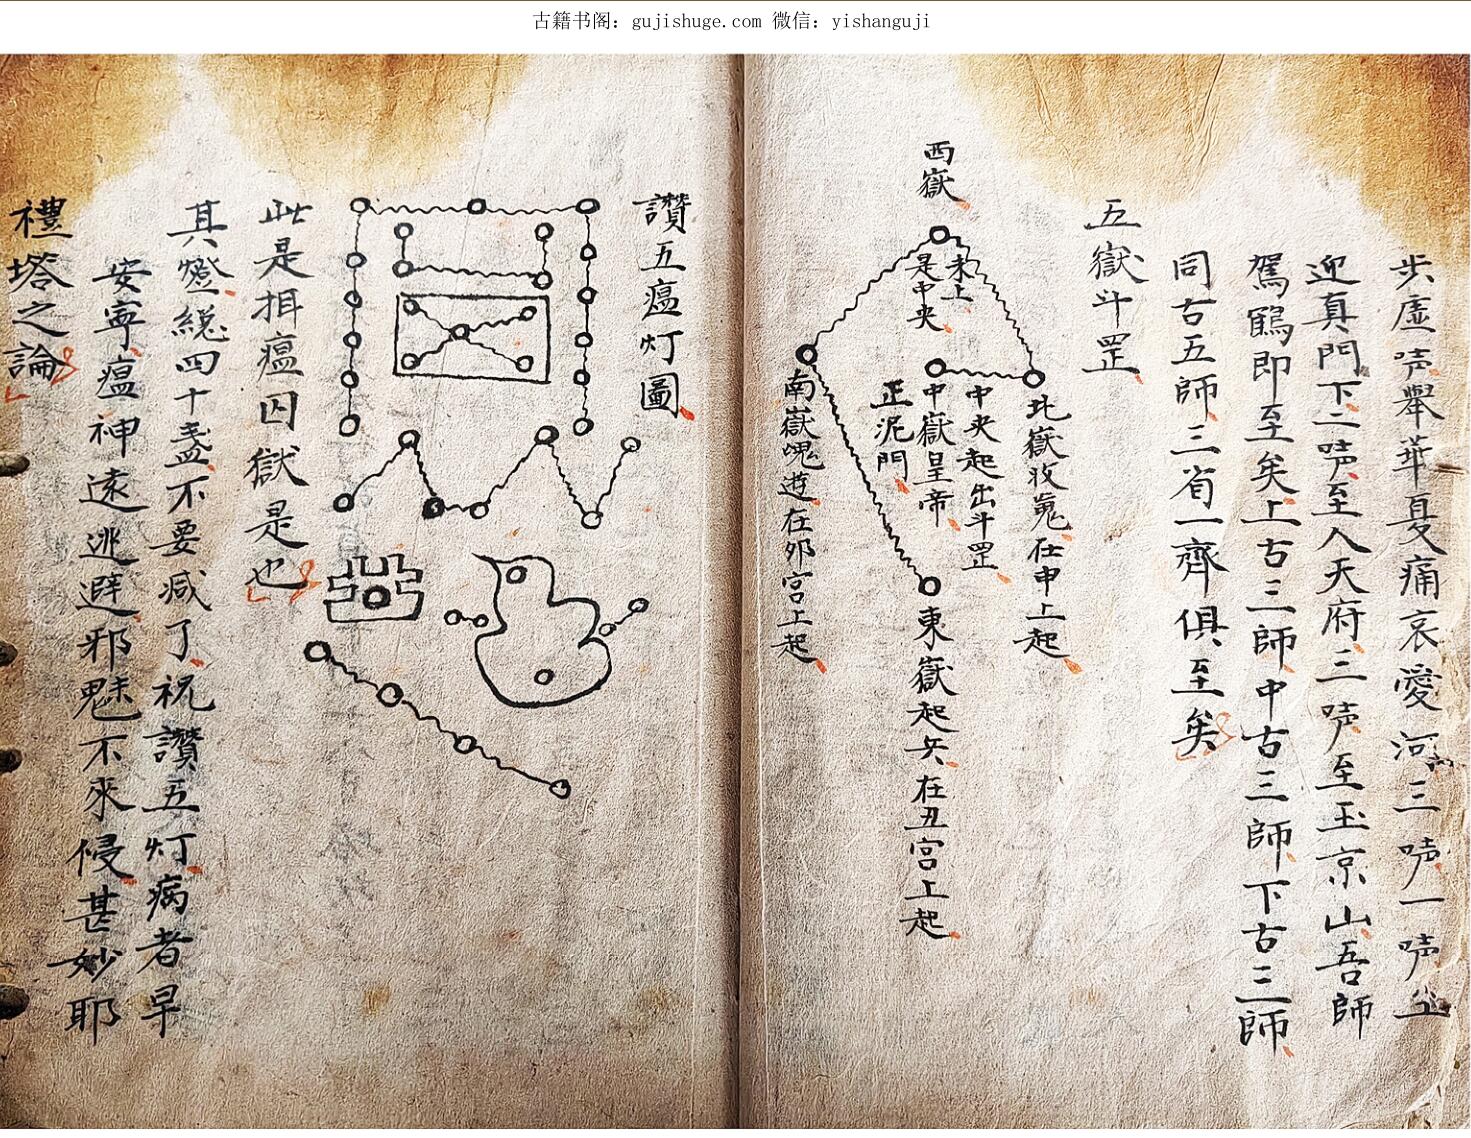 古籍书阁：gujishuge.com 微信：yishanguji
步虛唠舉華夏痛哀愛河三唠一唠
迎真門下二唠至入天府三唠至玉京山吾師
駕鶴即至矣上古三師中古三師下古三師
同古五師三省一齊俱至矣
五嶽斗罡
西嶽
未上
是中央
北嶽收嵬在申上起
中央起出斗罡
中嶽皇帝
正泥門
東嶽起兵在丑宮上起
南嶽塊遊在卯宮上起
讚五瘟灯圖
此是挕瘟囚獄是也
其燈總四十盞不要减了祝讚五灯病者早
安寧瘟神遠逃避邪魅不來侵甚妙耶
禮塔之論